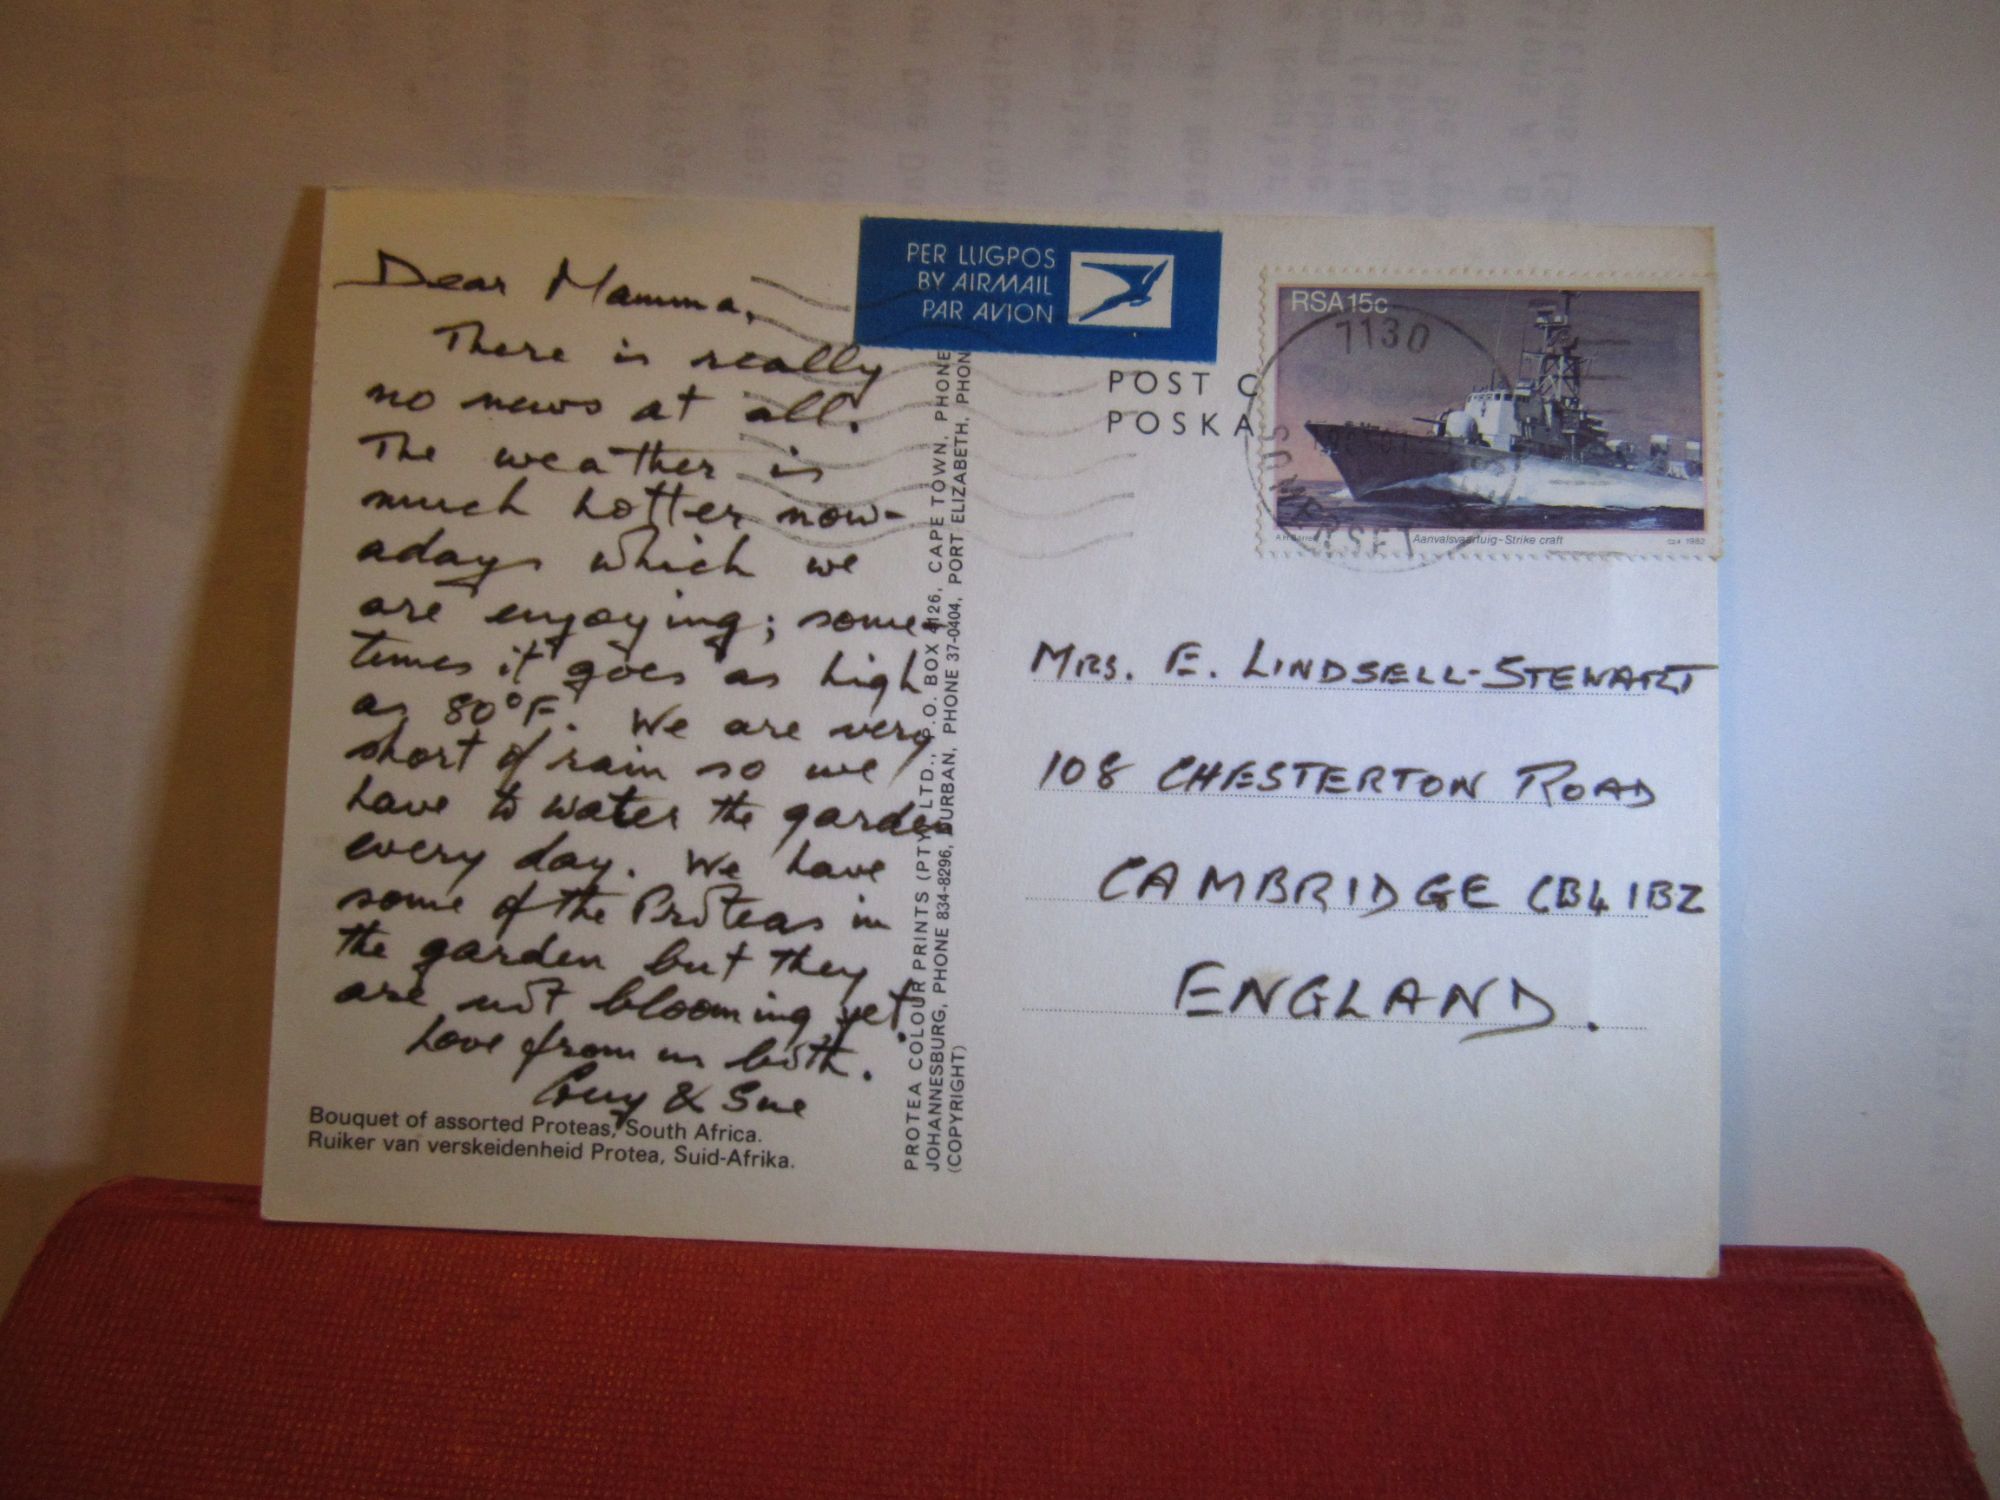 Dear Mamma,
There is really
no news at all.
The weather is
much hotter now-
adays which we
are enjoying; some-
times it goes as high
as 80°F. We are very
short of rain so we
have to water the garden
every day. We have
some of the Proteas in
the garden but they
are not blooming yet.
Love from us both.
Guy & Sue
Bouquet of assorted Proteas, South Africa.
Ruiker van verskeidenheid Protea, Suid-Afrika.
PROTEA COLOUR PRINTS (PTY) LTD., P.O. BOX 4126, CAPE TOWN, PHONE
JOHANNESBURG, PHONE 834-8296, DURBAN, PHONE 37-0404, PORT ELIZABETH, PHON
(COPYRIGHT)
PER LUGPOS
BY AIRMAIL
PAR AVION
POST C
POSKA
RSA 15c
1130
SOMERSET
Aanvalsvaartuig-Strike craft
1982
MRS. E. LINDSELL-STEWART
108 CHESTERTON ROAD
CAMBRIDGE CB4 1BZ
ENGLAND.